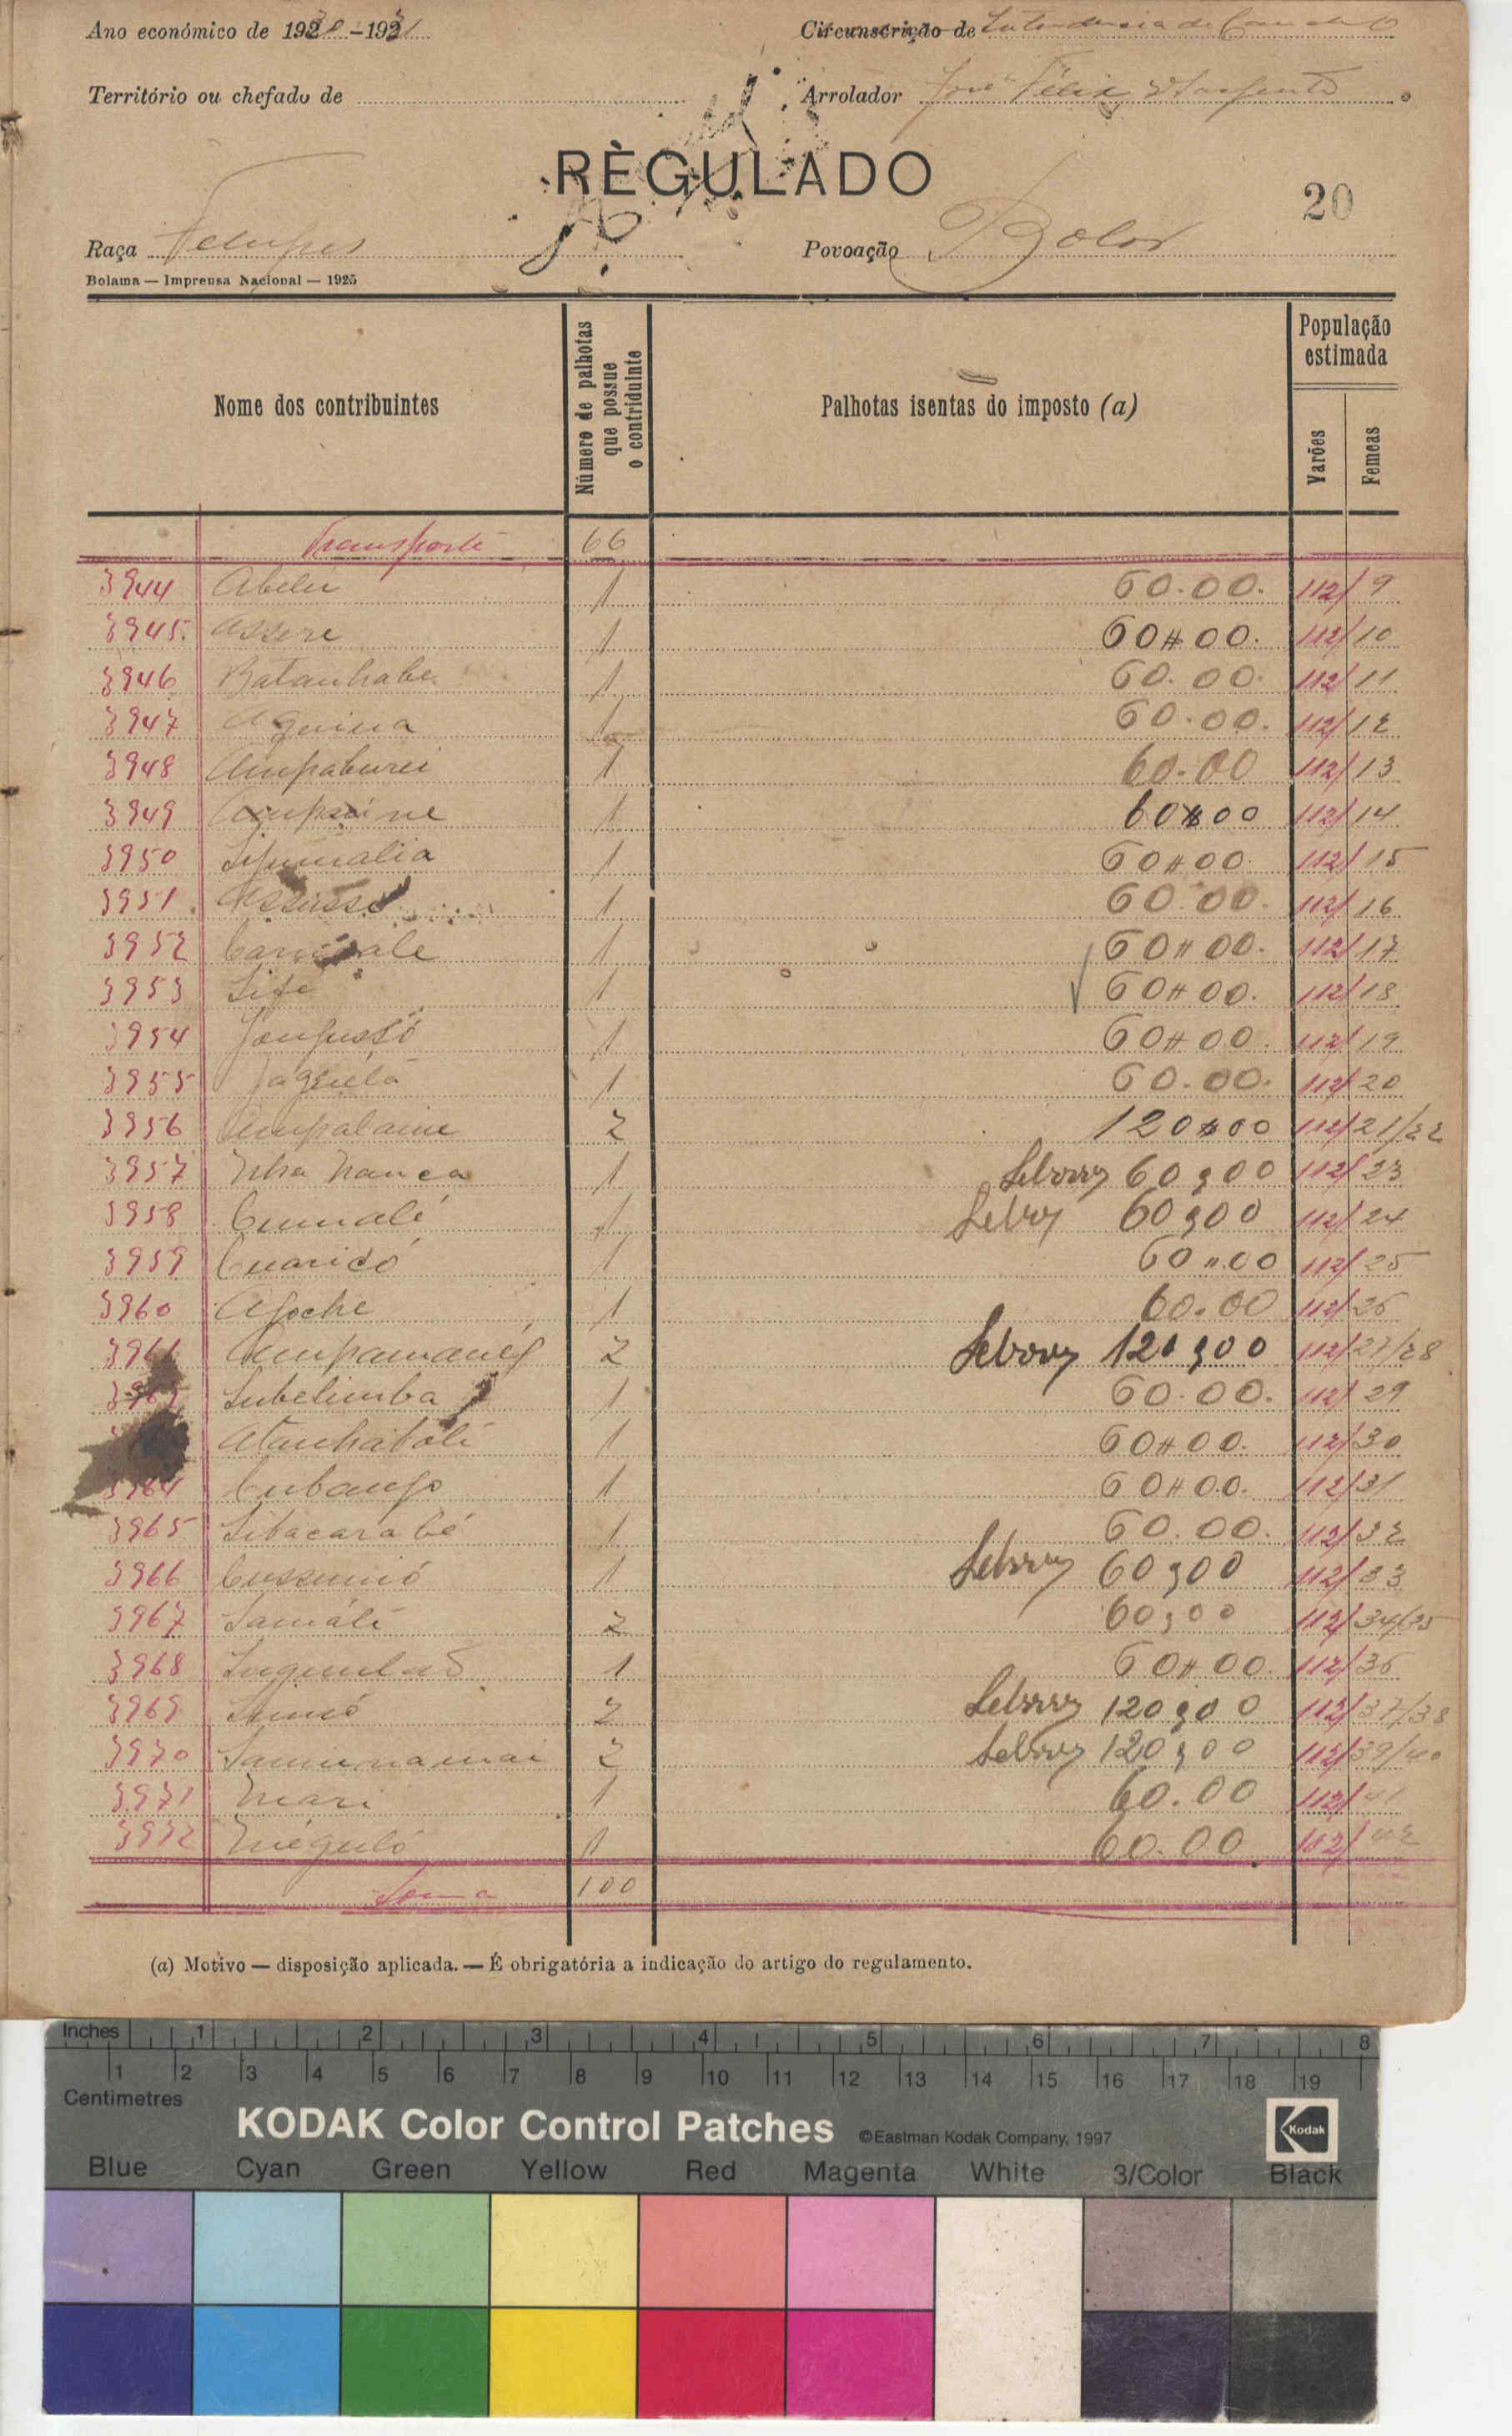 Ano económico de 1930-1931
Circunscrição de Intendencia de Cancheo
Território ou chefado de
Arrolador José Félix
RÈGULADO
20
Raça Felupes
Povoação Bolor
Bolama — Imprensa Nacional — 1925
Nome dos contribuintes
Número de palhotas que possue o contriduinte
Palhotas isentas do imposto (a)
População estimada
Varões
Femeas
Transporte 66
3944 Abelei 1 60.00. 112/ 9
3945 Assere 1 60#00. 112/10
3946 Batanhabe 1 60.00. 112/11
3947 Aguina 1 60.00. 112/12
3948 Ampaburei 1 60.00 112/13
3949 1 60$00 112/14
3950 Sipumalia 1 60#00. 112/15
3951 1 60.00. 112/16
3952 1 60#00. 112/17
3953 Sife 1 60#00. 112/18
3954 Jonfussó 1 60#00. 112/19
3955 1 60.00. 112/20
3956 Ampalaine 2 120$00 112/21/22
3957 Nha Nanca 1 60$00 112/23
3958 Cumalé 1 60$00 112/24
3959 Cuaridó 1 60"00 112/25
3960 Afoche 1 60.00 112/26
3961 2 120$00 112/27/28
3962 Subelimba 1 60.00. 112/29
Atanhaboli 1 60#00. 112/30
3964 Cubanfo 1 60#00. 112/31
3965 Sibacarabé 1 60.00. 112/32
3966 Cussumó 1 60$00 112/33
3967 Samáli 2 60$00 112/34/35
3968 1 60#00. 112/36
3969 2 120$00 112/37/38
3970 Samunamai 2 120$00 112/39/40
3971 Mari 1 60.00 112/41
3972 Miéguló 1 60.00 112/42
Soma 100
(a) Motivo — disposição aplicada. — É obrigatória a indicação do artigo do regulamento.
Inches 1 2 3 4 5 6 7 8
1 2 3 4 5 6 7 8 9 10 11 12 13 14 15 16 17 18 19
Centimetres
KODAK Color Control Patches ©Eastman Kodak Company, 1997 Kodak
Blue Cyan Green Yellow Red Magenta White 3/Color Black